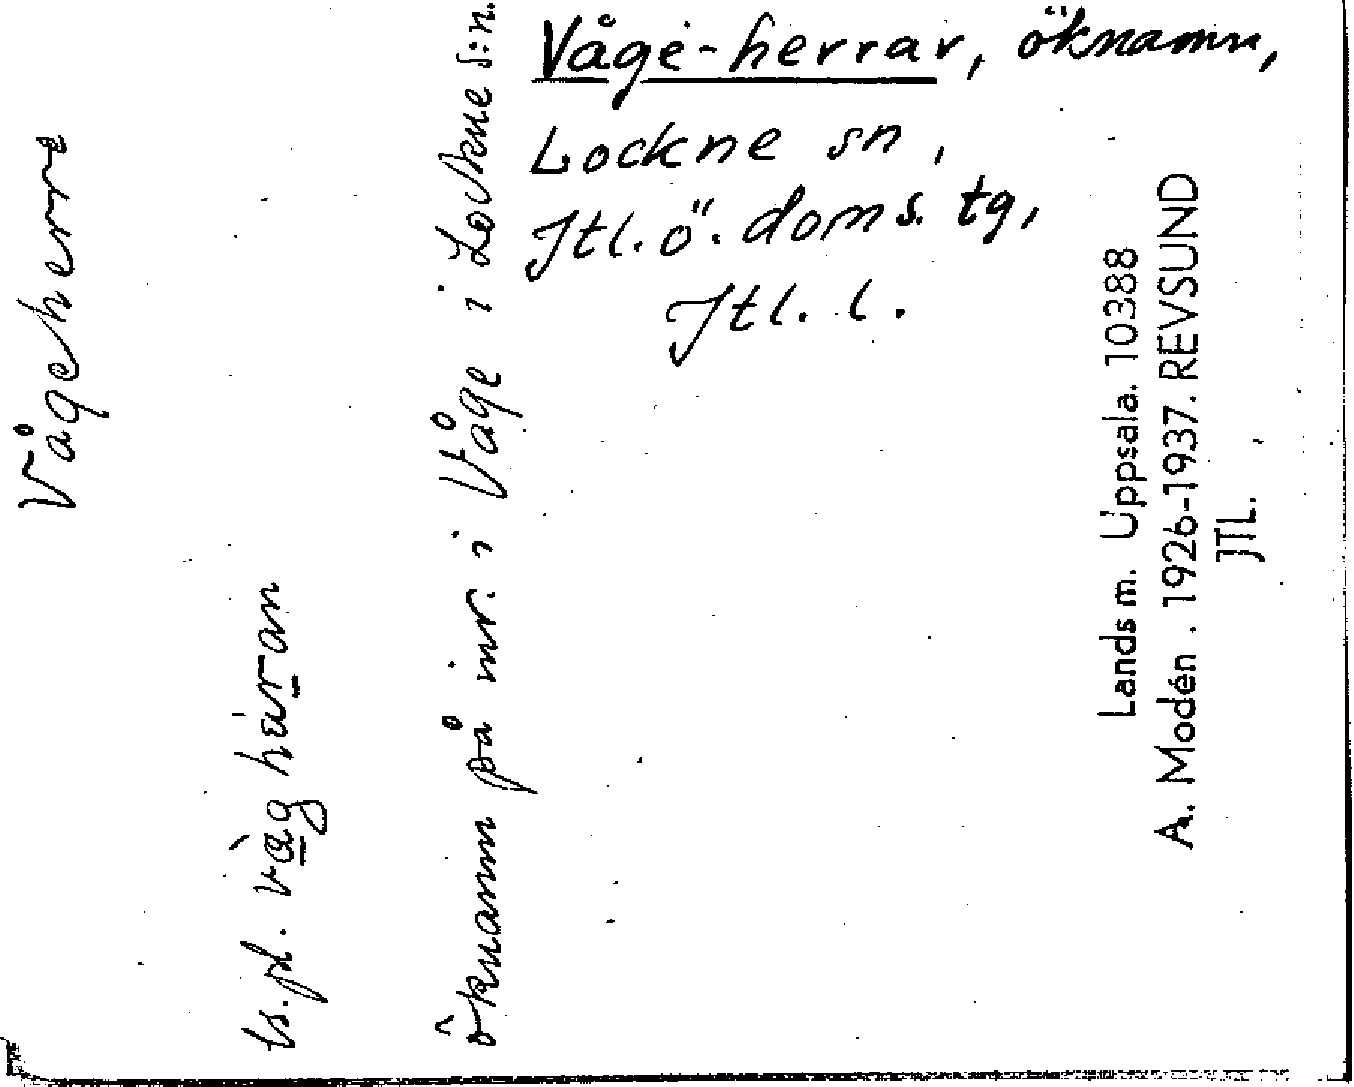 Våge-herrar, öknamn,
Lockne sn,
Jtl. ö. doms. tg,
Jtl. l.
Vågeherre
ts. pl. vàg hæran
öknamn på inv. i Våge i Lockne s:n.
Landsm. Uppsala. 10388
A. Modén. 1926-1937. REVSUND
JTL.